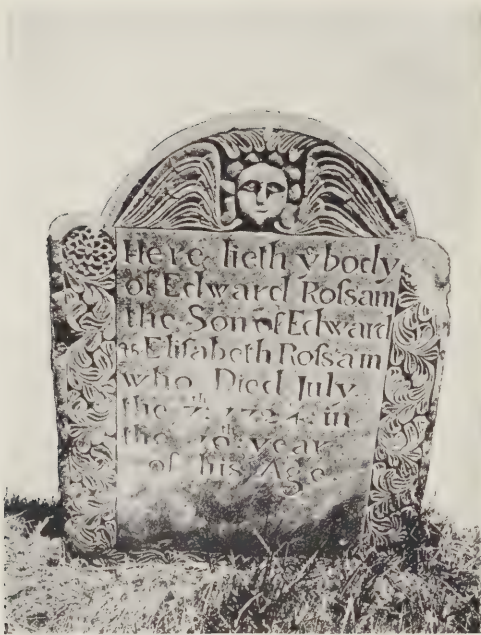 Here lieth yͤ body
of Edward Roſsam
the Son of Edward
& Eliſabeth Roſsam
who Died July
the 7th 1724 in
the year
of his Age